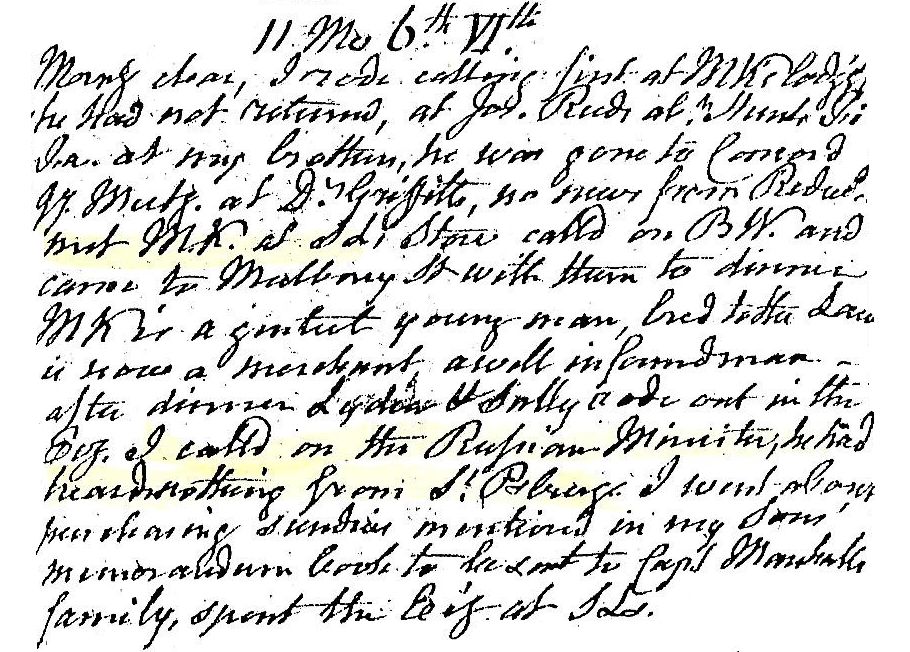 11 Mo 6th VIth
Morng clear, I rode calling first at MKs lodgs
he had not returned, at Jos. Reeds
at my brothers, he was gone to Concord
Qy. Meetg. at Dr. Griffitts, no news from
met M.K. at SLs Store called on B W. and
came to Mulberry St with them to dinner
MK is a genteel young man, bred to the Law
is now a merchant, a well informd man -
after dinner Lydia & Sally rode out in the
Ceg. I called on the Russian Minister, he had
heard nothing from St. Psburg. I went about
purchasing sundries mentioned in my Sons
memorandum book to be sent to Capt Marshalls
family, spent the Evg at SLs.